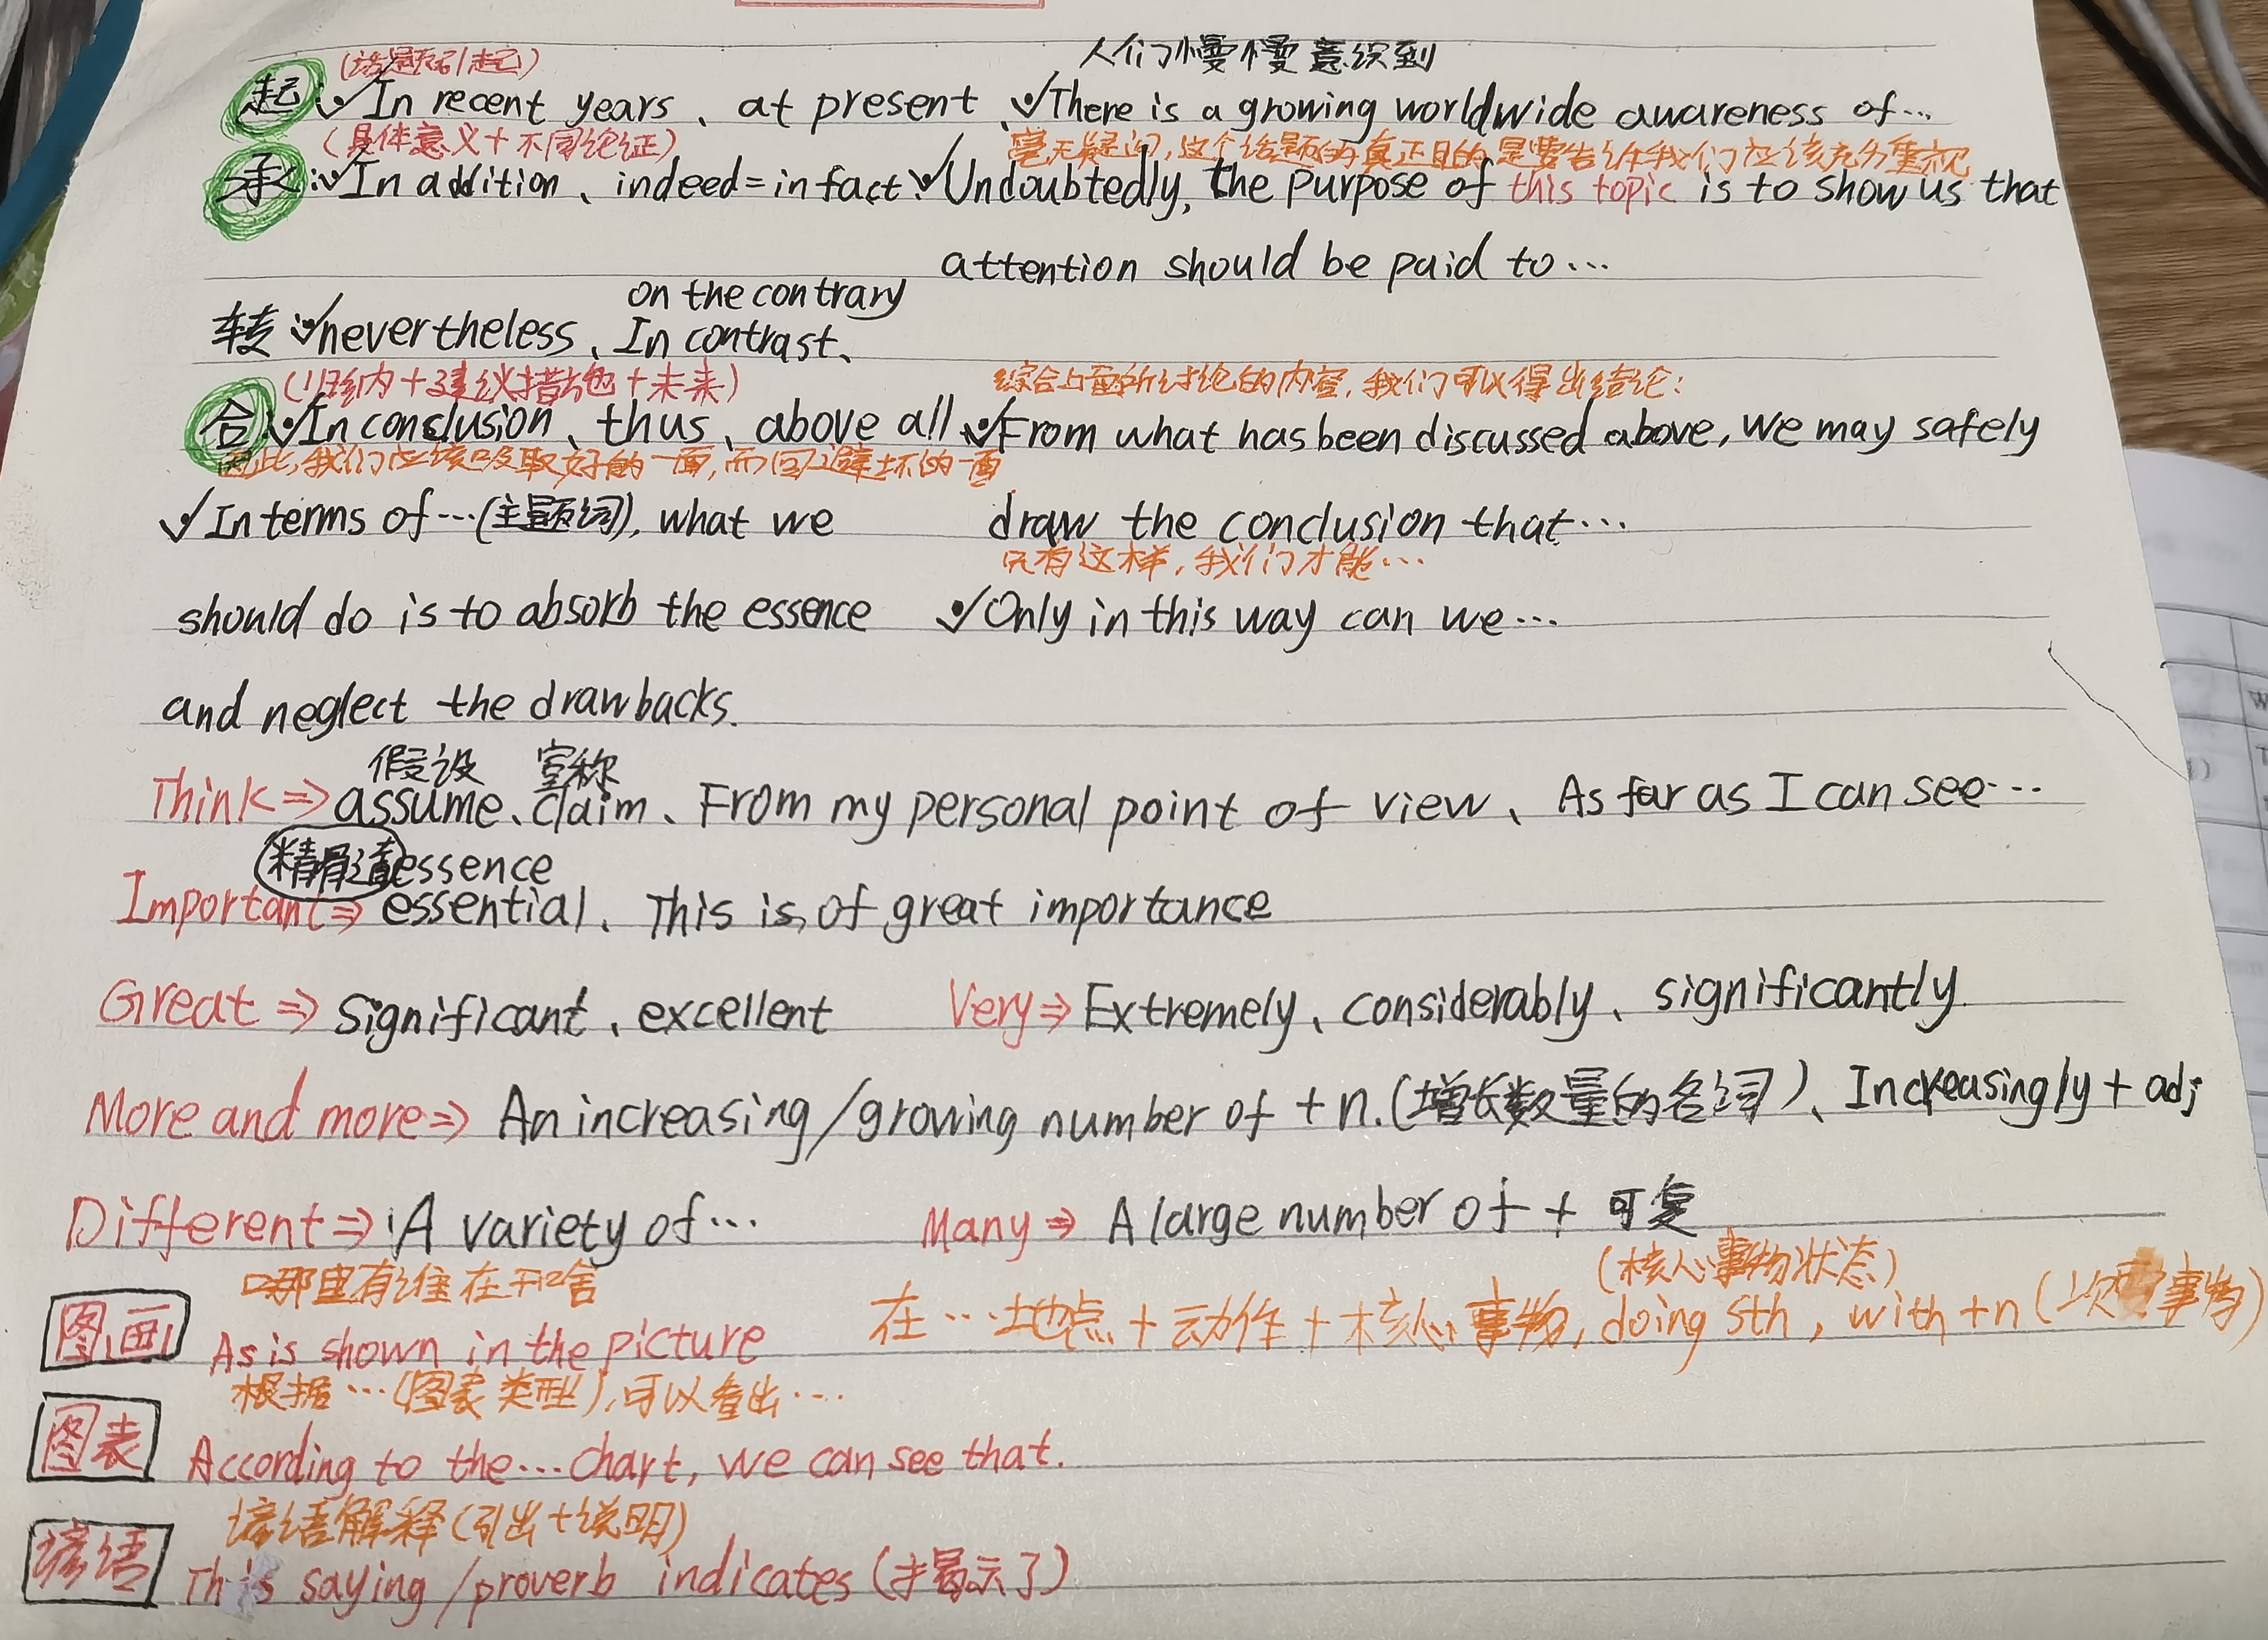 (话题引起) 人们慢慢意识到
起:✓In recent years、at present、✓There is a growing worldwide awareness of…
(具体意义+不同论证) 毫无疑问,这个话题的真正目的是要告诉我们应该充分重视
承:✓In addition、indeed=in fact、✓Undoubtedly, the purpose of this topic is to show us that
attention should be paid to…
on the contrary
转:✓nevertheless、In contrast、
(归纳+建议措施+未来) 综合上面所讨论的内容,我们可以得出结论:
合:✓In conclusion、thus、above all ✓From what has been discussed above, we may safely
因此,我们应该吸取好的一面,而回避坏的一面
✓In terms of…(主题词), what we draw the conclusion that…
只有这样,我们才能…
should do is to absorb the essence ✓Only in this way can we…
and neglect the drawbacks.
假设 宣称
Think⇒assume、claim、From my personal point of view、As far as I can see…
精髓 essence
Important⇒ essential、This is of great importance
Great⇒ significant、excellent Very⇒Extremely、considerably、significantly
More and more⇒ An increasing/growing number of +n.(增长数量的名词)、Increasingly+adj
Different⇒ A variety of… Many⇒ A large number of + 可复
哪里有谁在干啥 (核心事物状态)
图画 As is shown in the picture 在…地点+动作+核心事物, doing sth, with+n(次要事物)
根据…(图表类型),可以看出…
图表 According to the…chart, we can see that.
谚语解释(引出+说明)
谚语 This saying/proverb indicates(揭示了)